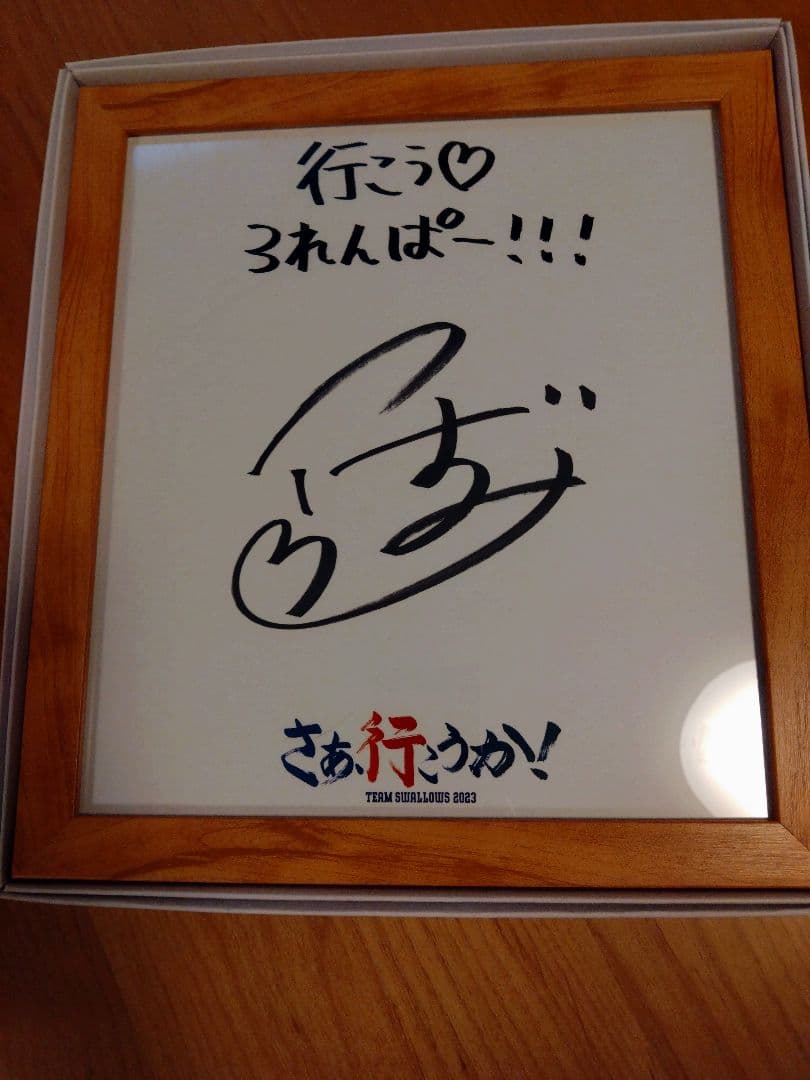 行こう♡
3れんぱー!!!
さあ、行こうか!
TEAM SWALLOWS 2023